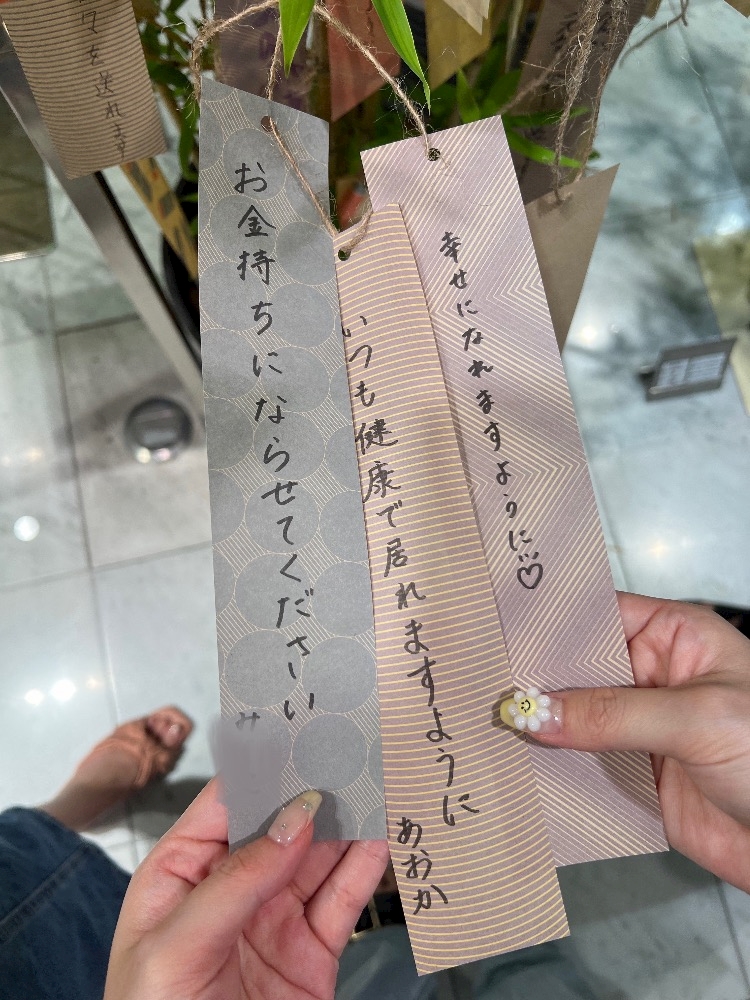 お金持ちにならせてください
み
いつも健康で居れますように
あおか
幸せになれますように♡
を送れます